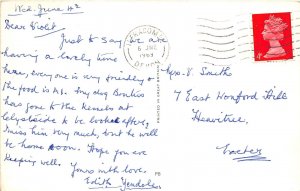 Wed. June 4th
Dear Violet
Just to say we are
having a lovely time
here, everyone is very friendly &
the food is A1. My dog
has gone to the Kennels at
to be looked after,
I miss him very much, but he will
be home soon. Hope you are
keeping well.
Yours with love.
Edith
5 JNE
1969
DEVON
PRINTED IN GREAT BRITAIN
Mrs. V. Smith
7 East Wonford Hill
Heavitree
Exeter